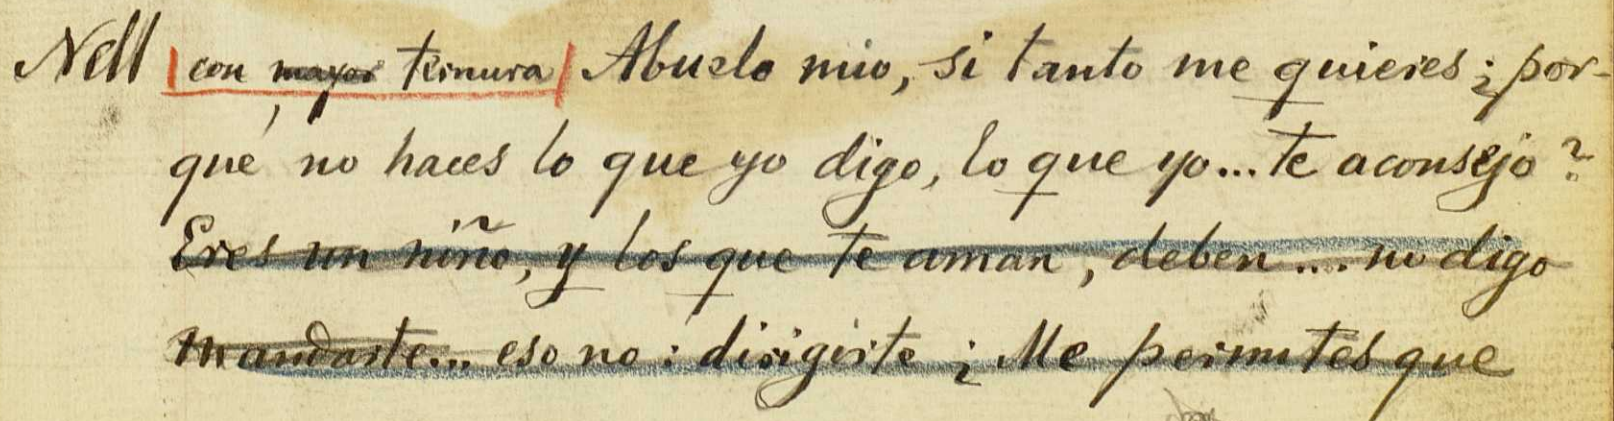 Nell con mayor ternura Abuelo mio, si tanto me quieres ¿por-
qué no haces lo que yo digo, lo que yo... te aconsejo?
Eres un niño, y los que te aman, deben .... no digo
mandarte... eso no: dirigirte ¿Me permites que